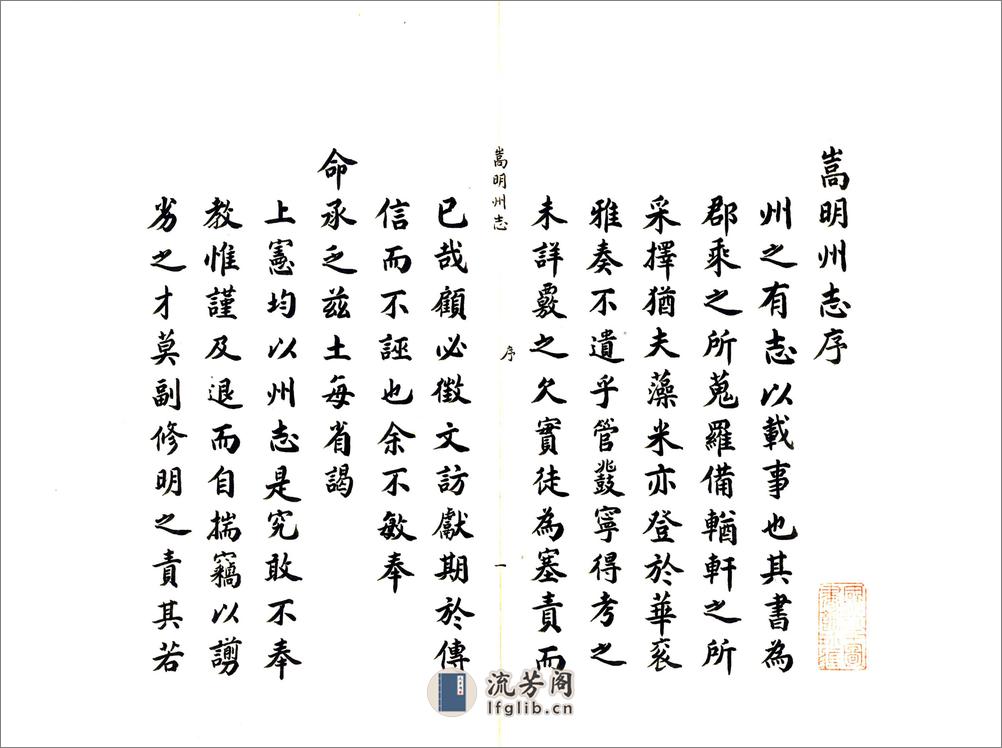 嵩明州志序
州之有志以載事也其書為
郡乘之所蒐羅備輶軒之所
采擇猶夫藻米亦登於華袞
雅奏不遺乎管鼗寧得考之
未詳覈之欠實徒為塞責而
嵩明州志
序
一
已哉顧必徵文訪獻期於傳
信而不誣也余不敏奉
命承乏茲土每省謁
上憲均以州志是究敢不奉
教惟謹及退而自揣竊以謭
劣之才莫副修明之責其若
流芳阁
lfglib.cn